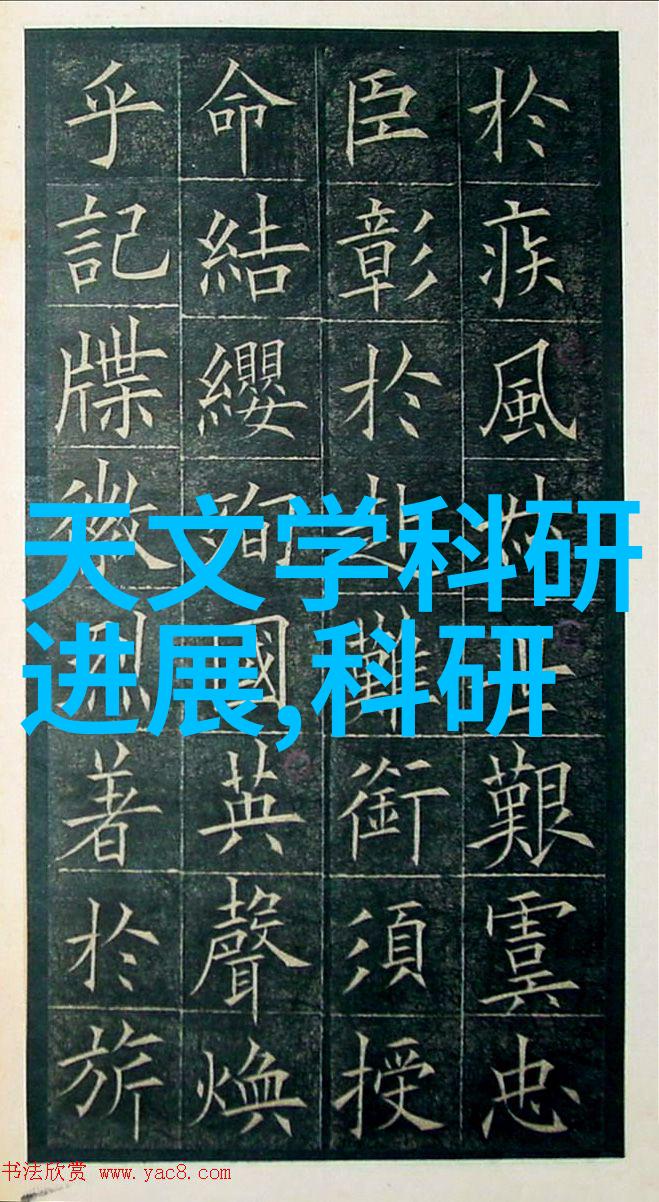 於疾風在世艱虞忠
臣彰於赴難銜須授
命結纓國英聲煥
乎記牒徽烈著於旂
天文学科研
进展,科研
书法欣赏 www.yac8.com